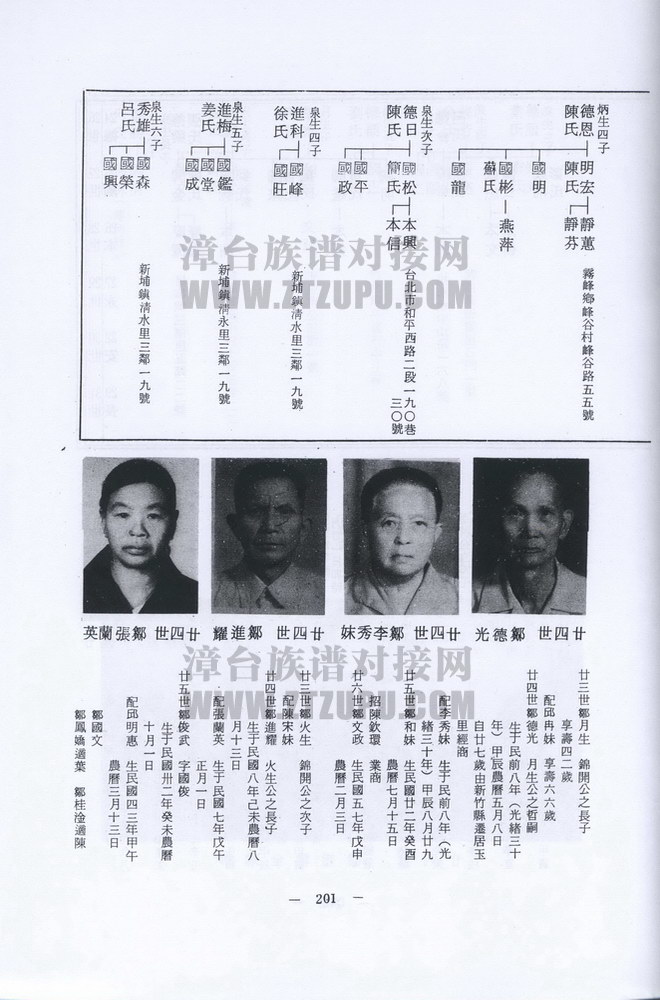 炳生四子
德恩
陳氏
明宏
陳氏
靜蕙
靜芬
霧峰鄉峰谷村峰谷路五五號
國明
國彬
蘇氏
燕萍
國龍
泉生次子
德日
陳氏
國松
簡氏
本興
本信
台北市和平西路二段一九〇巷
三〇號
國平
國政
泉生四子
進科
徐氏
國峰
國旺
新埔鎮清水里三鄰一九號
泉生五子
進梅
姜氏
國鑑
國堂
國成
新埔鎮清水里三鄰一九號
泉生六子
秀雄
呂氏
國森
國榮
國興
新埔鎮清水里三鄰一九號
漳台族谱对接网
WWW.ZTZUPU.COM
廿四世 鄒德光
廿四世 鄒李秀妹
廿四世 鄒進耀
廿四世 鄒張蘭英
漳台族谱对接网
WWW.ZTZUPU.COM
廿三世鄒月生 錦開公之長子
享壽四二歲
配邱冉妹 享壽六六歲
廿四世鄒德光 月生公之哲嗣
生于民前八年（光緒三十
年）甲辰農曆五月八日
自廿七歲由新竹縣遷居玉
里經商
配李秀妹 生于民前八年（光
緒三十年）甲辰八月廿九
廿五世鄒和妹 生民國廿二年癸酉
農曆七月十五日
招陳欽環 業商
廿六世鄒文政 生民國五七年戊申
農曆二月三日
廿三世鄒火生 錦開公之次子
配陳宋妹
廿四世鄒進耀 火生公之長子
生于民國八年己未農曆八
月十三日
配張蘭英 生于民國七年戊午
正月一日
廿五世鄒俊武 字國俊
生于民國卅二年癸未農曆
十月一日
配邱明惠 生民國四三年甲午
農曆三月十三日
鄒國文
鄒鳳嬌適葉 鄒桂淦適陳
— 201 —